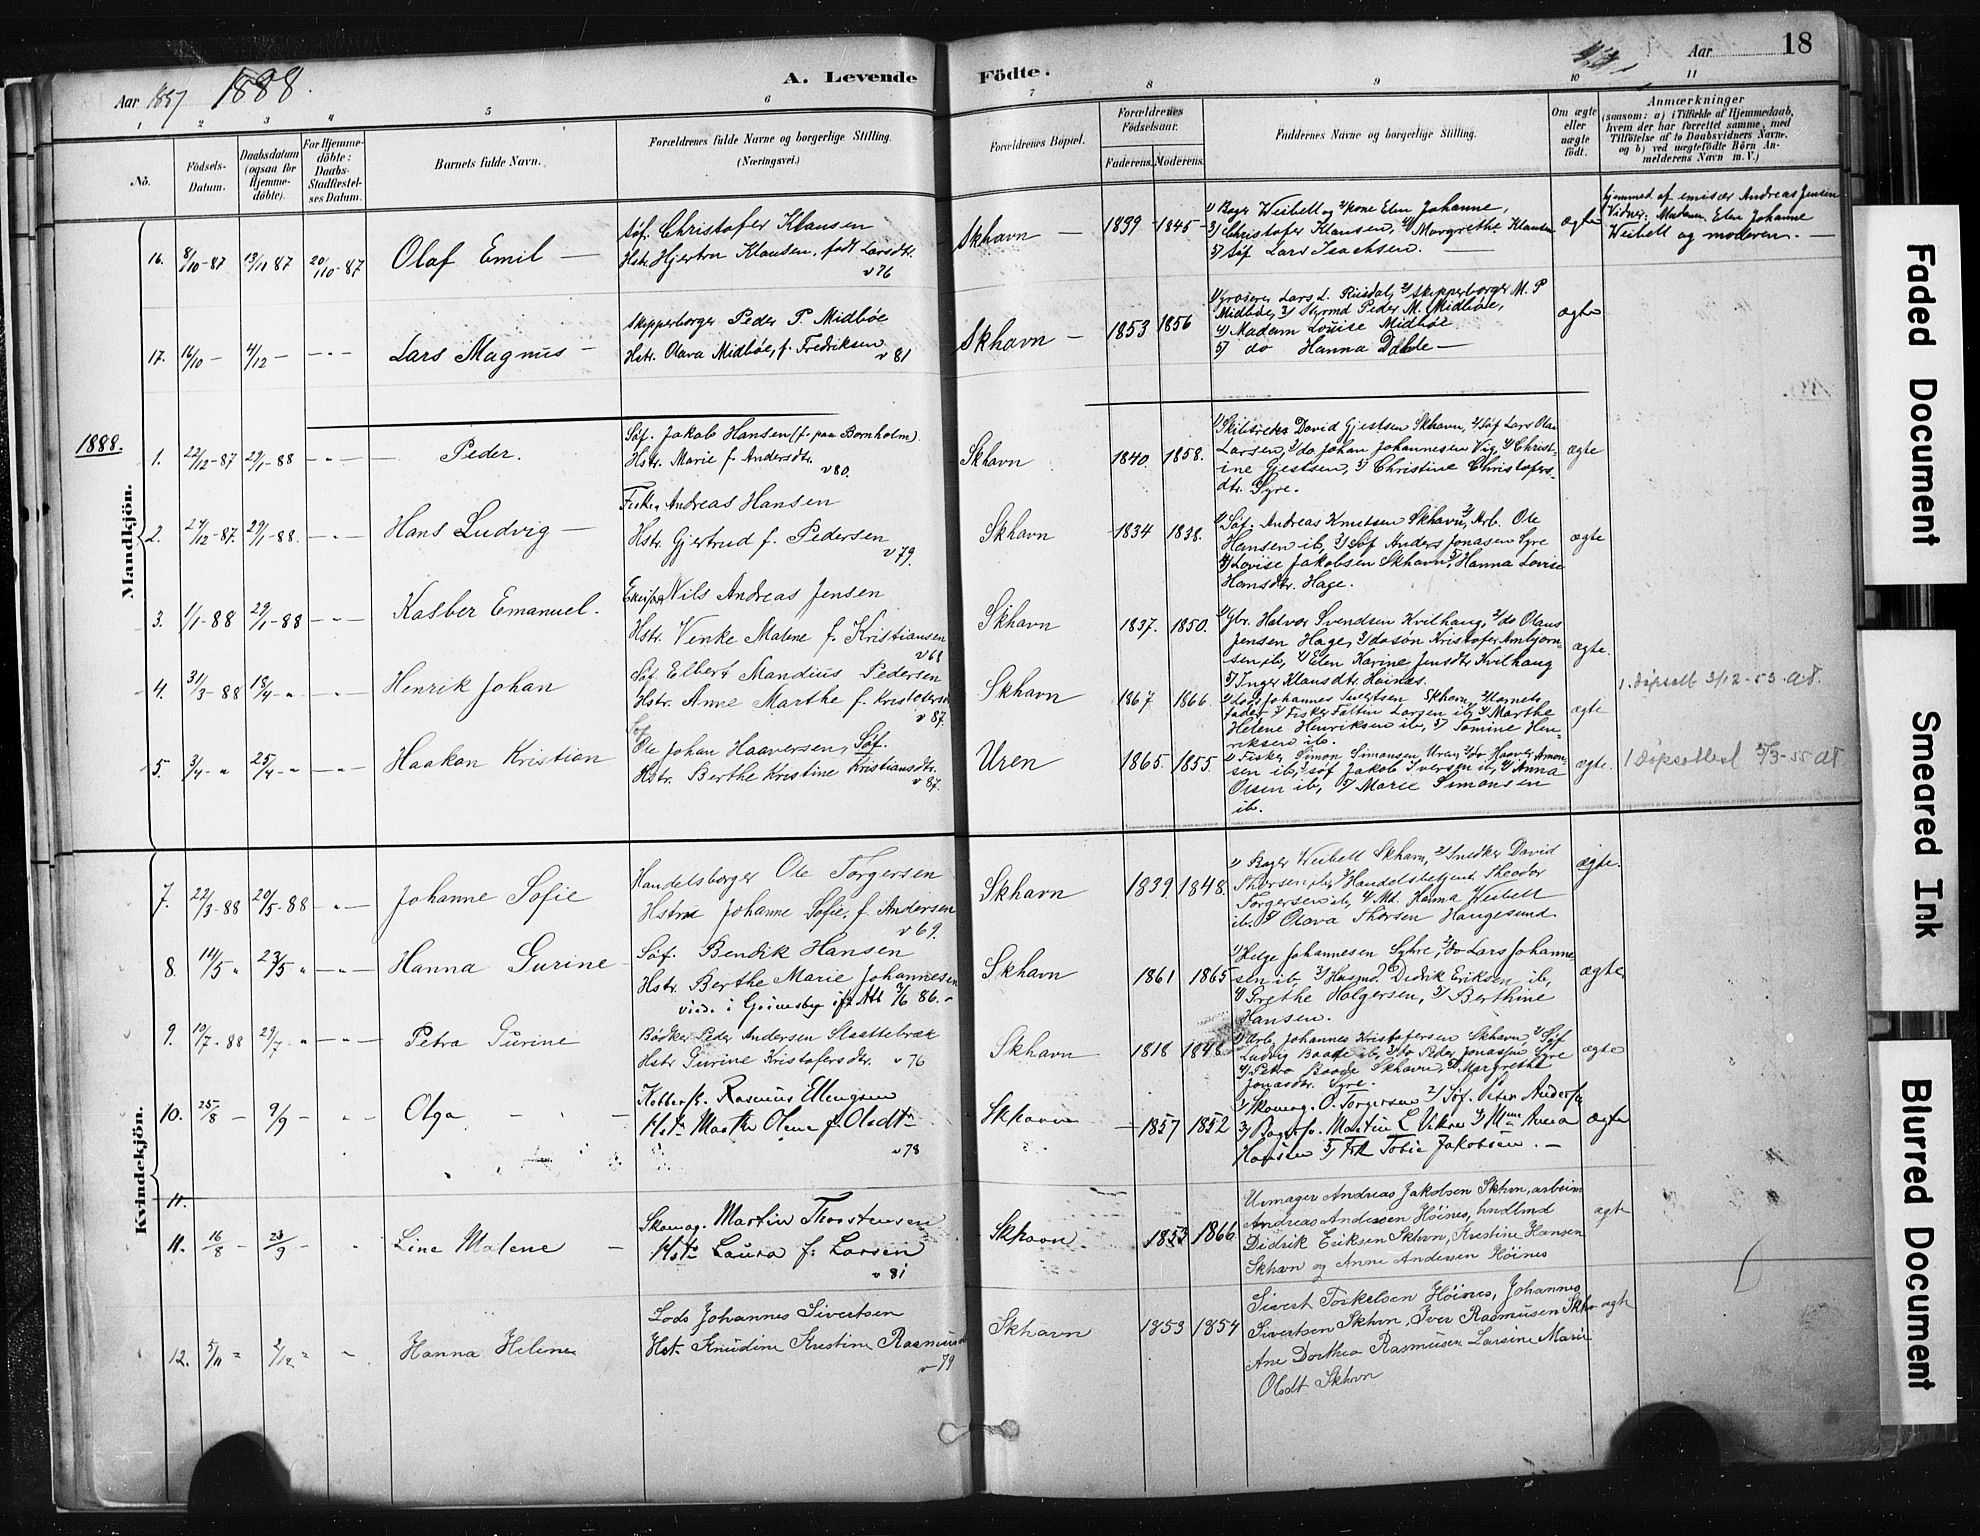 Aar 1887 1888. A. Levende Födte. Aar 18
1 2 3 4 5 6 7 8 9 10 11
No.
Födsels-Datum.
Daabsdatum (ogsaa for Hjemme-döbte).
For Hjemme-döbte: Daabs-Stadfæstel-ses Datum.
Barnets fulde Navn.
Forældrenes fulde Navne og borgerlige Stilling. (Næringsvei.)
Forældrenes Bopæl.
Forældrenes Födselsaar.
Faderens. Moderens.
Faddernes Navne og borgerlige Stilling.
Om ægte eller uægte födt.
Anmærkninger
(saasom: a) i Tilfælde af Hjemmedaab,
hvem der har forrettet samme, med
Tilföielse af to Daabsvidners Navne.
og b) ved uægtefödte Börn An-
melderens Navn m. V.)
16. 8/10-87 13/11 87 20/10-87 Olaf Emil —
Søf. Christofer Klausen
Hstr. Hjertru Klausen, født Larsdtr.
v 76
Skhavn — 1839 - 1845 -
1) Bager Weibell og 2) kone Elen Johanne,
3) Christofer Klausen, 4) Margrethe Klausen
5) Søf Lars Isachsen. —
ægte
hjemmed. af emisær Andreas Jensen
Vidner: Madam Elen Johanne
Weibell og moderen. —
17. 16/10 — 4/12 — - - - Lars Magnus —
Skipperborger Peder P. Midbøe
Hstr. Olava Midbøe, f. Fredriksen
v 81
Skhavn — 1853 1856
Lars L. Risdal, 2) Skipperborger M. P
Midbøe, 3) Styrmd Peder M. Midbøe,
4) Madam Louise Midbøe
5) do Hanna Dahle —
ægte
1888.
Mandkjön.
1. 22/12-87 29/1-88 - " - Peder.
Søf. Jakob Hansen (f. paa Bornholm)
Hstr. Marie f. Andersdtr.
v 80.
Skhavn 1840. 1858.
David Gjestsen Skhavn, 2) Søf Lars Olai
Larsen, 3) do Johan Johannesen Vig, 4) Christ-
ine Gjestsen, 5) Christine Christofers-
dtr. Syre.
ægte
2. 27/12-87. 29/1-88. - " - Hans Ludvig —
Fisker Andreas Hansen
Hstr. Gjertrud f. Pedersen
v 79.
Skhavn 1834 1838.
1) Søf. Andreas Knutsen Skhavn, 2) Arb. Ole
Hansen ib, 3) Søf Anders Jonasen Syre
4) Lovise Jakobsen Skhavn, 5) Hanna Lovise
Hansdtr. Hage.
ægte
3. 1/1-88 29/1-88 - " - Kasber Emanuel.
Nils Andreas Jensen
Hstr. Venke Malene f. Kristiansen
v 68
Skhavn 1837. 1850.
1) Gbr. Halvor Svendsen Kvilhaug, 2) do Olaus
Jensen Hage, 3) do søn Kristofer Ambjørn-
sen ib, 4) Elen Karine Jensdtr Kvilhaug
5) Inger Klausdtr Høines.
ægte.
4. 31/3-88 18/4 - " - " - Henrik Johan
Søf Elbert Mandius Pedersen
Hstr. Anne Marthe f. Kristofersen
v 87.
Skhavn 1867 1866.
1) Lods Johannes Sivertsen Skhavn, 2) Barnets
fader 3) Fisker Faltin Larsen ib, 4) Marthe
Helene Henriksen ib, 5) Tomine Hen-
riksen ib.
ægte
1. dåpsatt 3/12-53. a.t.
5. 3/4 - " 25/4 - " - " - Haakon Kristian
Søf
Ole Johan Haaversen, Søf.
Hstr. Berthe Kristine Kristiansdtr.
v 87.
Uren 1865. 1855.
1) Fisker Simon Simonsen, Uren, 2) do Haaver Amon-
sen ib, 3) søf Jakob Iversen ib, 4) Anna
Olsen ib, 5) Marie Simonsen
ib.
ægte.
1 dåpsattest 5/3-55 at
Kvindekjön.
7. 22/3-88 20/5-88 - " - Johanne Sofie
Handelsborger Ole Torgersen
Hstru Johanne Sofie, f. Andersen
v 69.
Skhavn 1839. 1848.
1) Bager Weibell Skhavn, 2) Snedker David
Thorsen ib, 3) Handelsbetjent Theodor
Torgersen ib, 4) Md. Hanna Weibell
ib. 5) Olava Thorsen Haugesund.
ægte.
8. 14/5 " 23/5 " - " - Hanna Gurine
Søf. Bendik Hansen
Hstr. Berthe Marie Johannesen
viede i Grimsby ifl. Att 3/6 86. -
Skhavn 1861 1865
1) Helge Johannesen Syhre, 2) do Lars Johanne-
sen ib, 3) Husmd. Didrik Eriksen ib,
4) Grethe Holgersen, 5) Berthine
Hansen.
ægte
9. 19/7-88 29/7 " - " - Petra Gurine
Bødker Peder Andersen Slaattebræk
Hstr Gurine Kristofersdtr. v 76
Skhavn 1818 1848
1) Arb. Johannes Kristofersen Skhavn, 2) Søf
Ludvig Baade ib, 3) do Peder Jonassen Syre
4) Petra Baade Skhavn, 5) Margrethe
Jonasdtr. Syre.
ægte
10. 25/8 — 9/9 — " - Olga
Rasmus Ellingsen
Hstr Marthe Olene f. Olsdtr
v 78
Skhavn — 1857 1852
1) Skomag. O. Torgersen 2) Søf. Peter Andersen
Anna
Hansen 5) Frk Tobie Jakobsen. —
ægte
11.
11. 16/8 - 23/9 - " Line Malene —
Skomag. Martin Thorstensen
Hstr Laura f. Larsen
v 81
Skhavn. 1853 1866
Urmager Andreas Jakobsen Skhvn, arbeim
Andreas Andersen Høines, hndlmd
Didrik Eriksen Skhvn, Kristine Hansen
Skhavn og Anne Andersen Høines
ægte
12. 5/11 " 2/12 " " Hanna Helene
Lods Johannes Sivertsen
Hst. Knudine Kristine Rasmusdtr
v 79
Skhavn 1853 1854
Sivert Torkelsen Høines, Johannes
Sivertsen Skhvn, Iver Rasmusen Skhvn
Ane Dorthea Rasmusen Larsine Marie
Olsdt Skhvn
ægte
Faded Document
Smeared Ink
Blurred Document